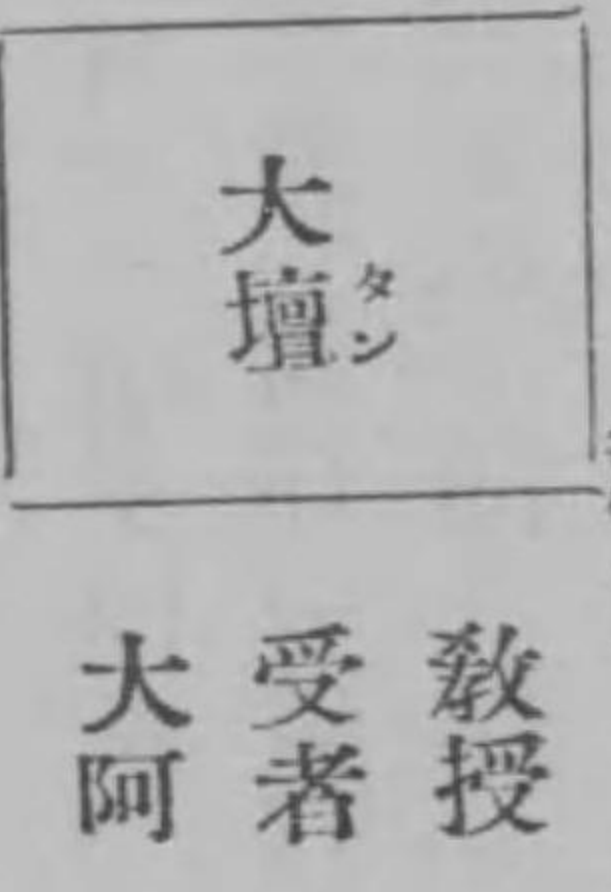 大壇
タン
教授
受者
大阿